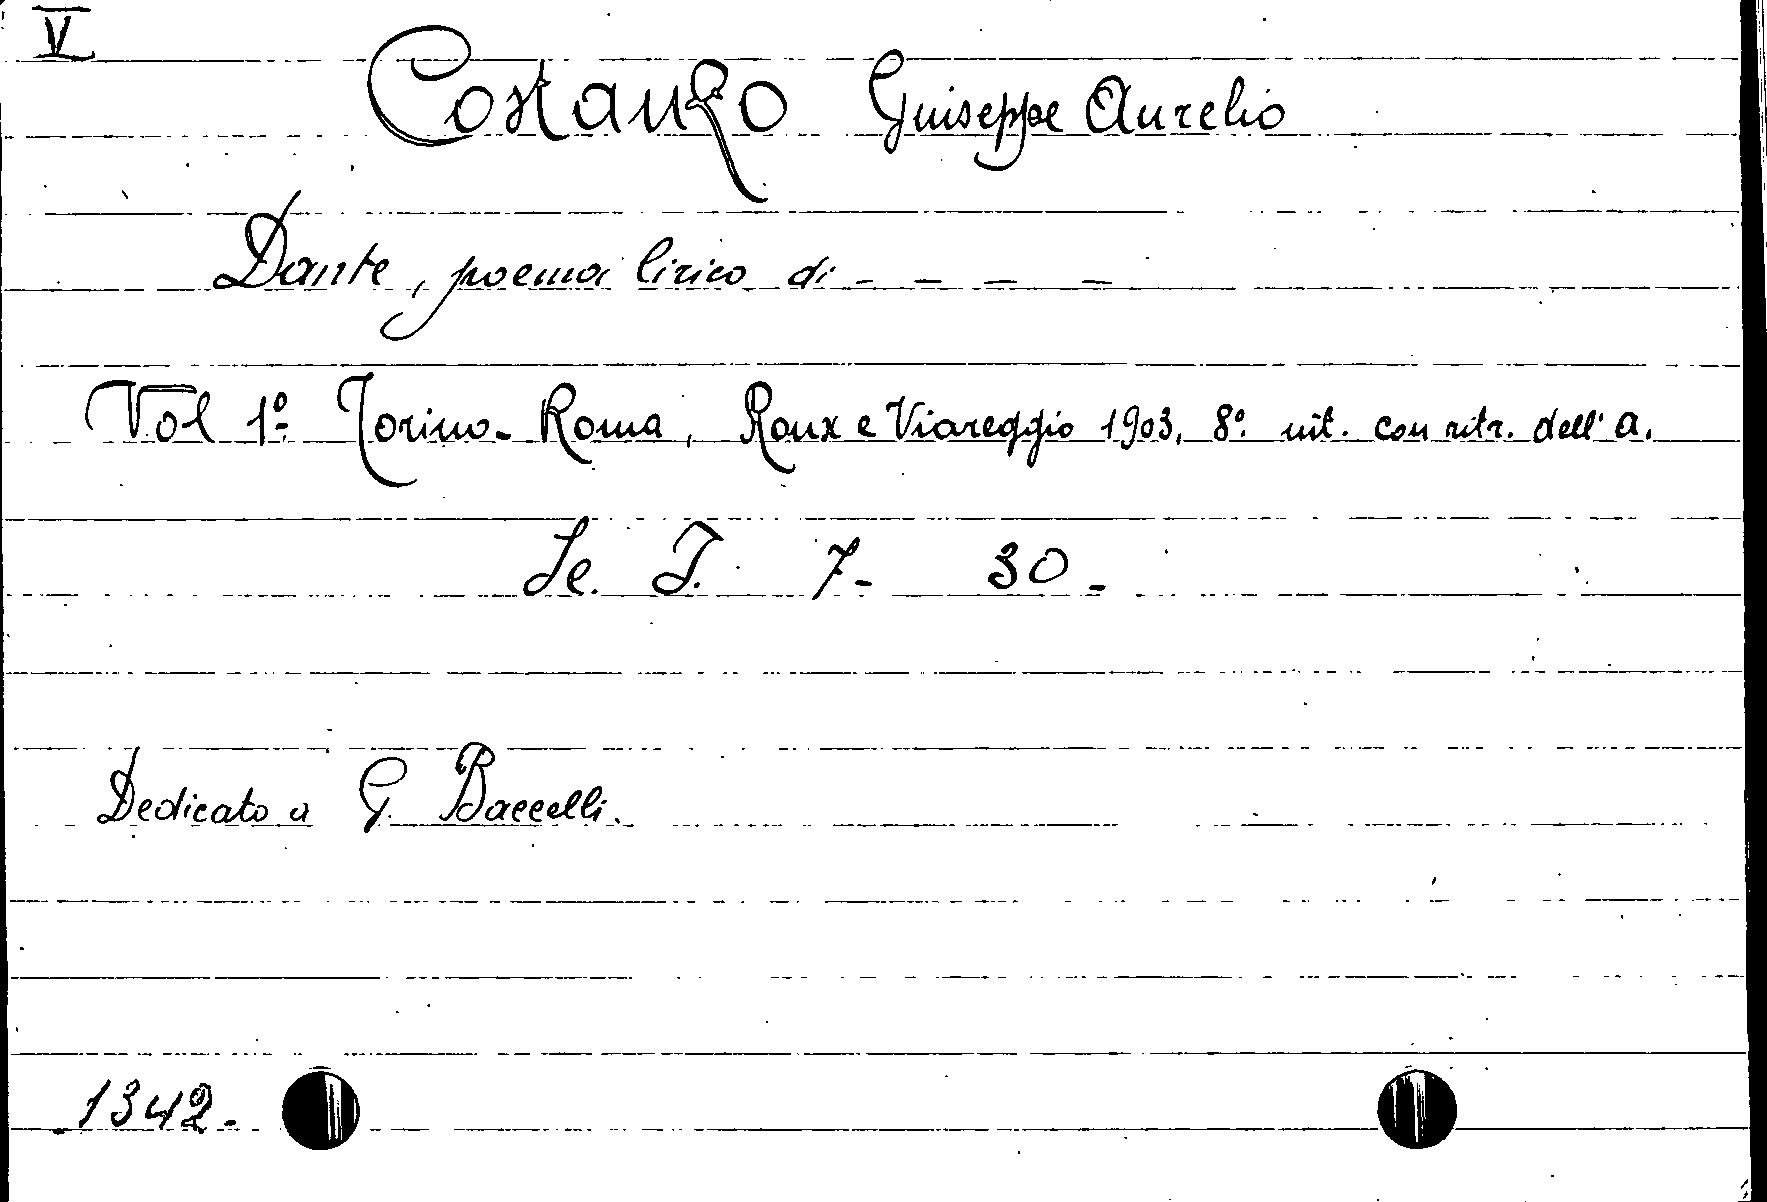 V
Costanzo Giuseppe Aurelio
Dante, poema lirico di - - - -
Vol 1º. Torino - Roma, Roux e Viareggio 1903, 8º. con ritr. dell' a.
Se. T. 7 - 30 -
Dedicato a G. Baccelli.
1342.